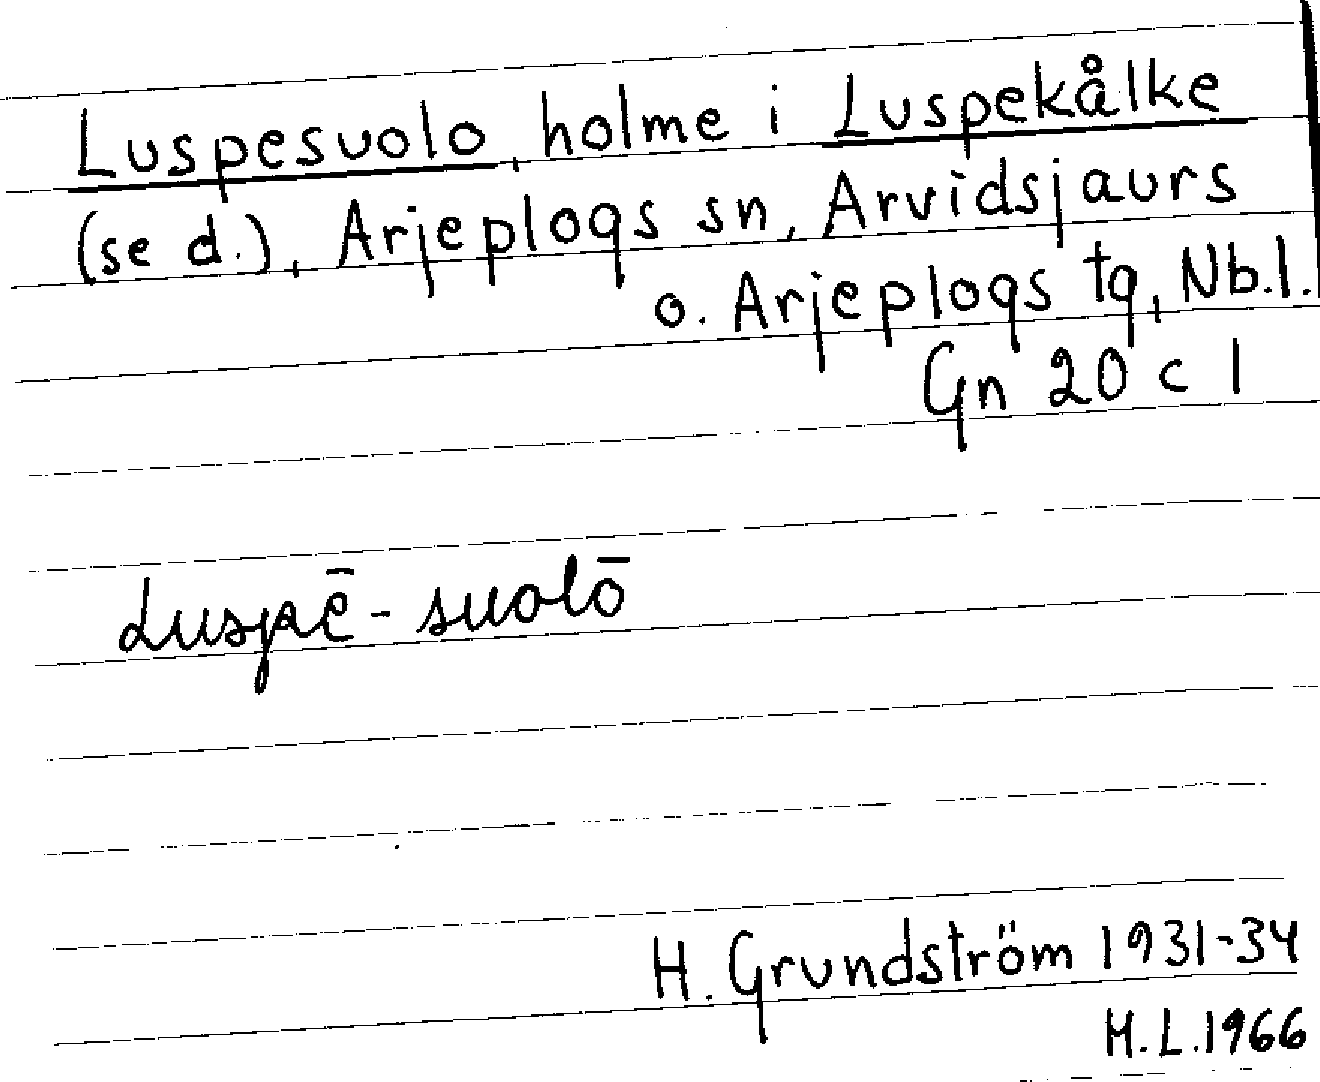 Luspesuolo, holme i Luspekålke
(se d.), Arjeplogs sn, Arvidsjaurs
o. Arjeplogs tg, Nb.l.
Gn 20 c 1
Luspē-suolō
H. Grundström 1931-34
H.L.1966